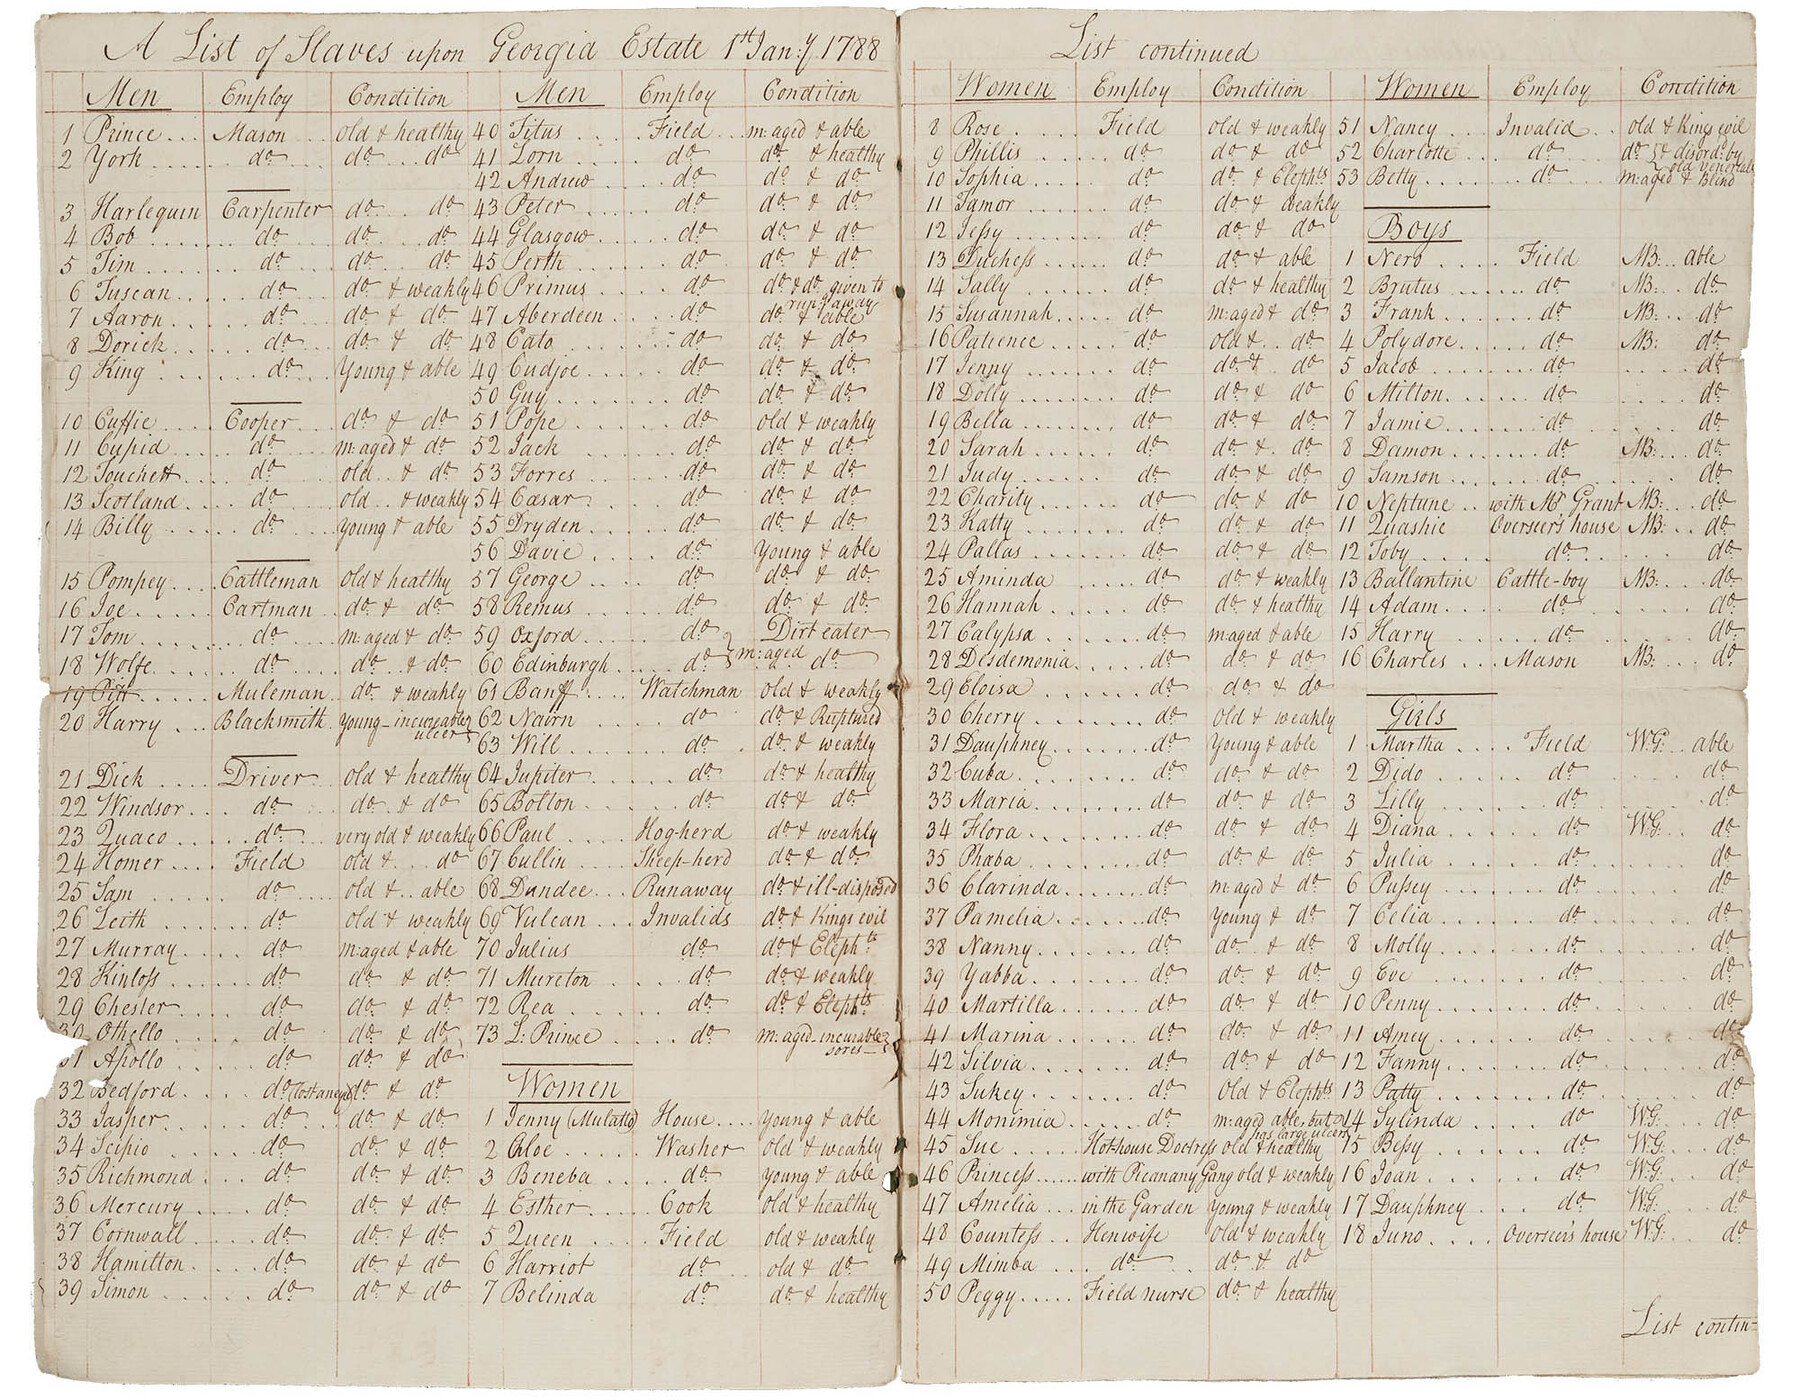 A List of Slaves upon Georgia Estate 1st Jan:y 1788
Men Employ Condition
1 Prince Mason old & healthy
2 York do do do
3 Harlequin Carpenter do do
4 Bob do do do
5 Tim do do do
6 Tuscan do do & weakly
7 Aaron do do & do
8 Dorick do do & do
9 King do Young & able
10 Cuffie Cooper do & do
11 Cupid do m:aged & do
12 Touchett do old & do
13 Scotland do old & weakly
14 Billy do young & able
15 Pompey Cattleman old & healthy
16 Joe Cartman do & do
17 Tom do m:aged & do
18 Wolfe do do & do
19 Pitt Muleman do & weakly
20 Harry Blacksmith young - incureable ulcers
21 Dick Driver old & healthy
22 Windsor do do & do
23 Quaco do very old & weakly
24 Homer Field old & do
25 Sam do old & able
26 Leith do old & weakly
27 Murray do m:aged & able
28 Kinloss do do & do
29 Chester do do & do
30 Othello do do & do
31 Apollo do do & do
32 Bedford do do & do
33 Jasper do do & do
34 Scipio do do & do
35 Richmond do do & do
36 Mercury do do & do
37 Cornwall do do & do
38 Hamilton do do & do
39 Simon do do & do
Men Employ Condition
40 Titus Field m:aged & able
41 Lorn do do & healthy
42 Andrew do do & do
43 Peter do do & do
44 Glasgow do do & do
45 Perth do do & do
46 Primus do do & do given to run away
47 Aberdeen do do & able
48 Cato do do & do
49 Cudjoe do do & do
50 Guy do do & do
51 Pope do old & weakly
52 Jack do do & do
53 Forres do do & do
54 Cæsar do do & do
55 Dryden do do & do
56 Davie do Young & able
57 George do do & do
58 Remus do do & do
59 Oxford do Dirt eater
60 Edinburgh do m:aged do
61 Banff Watchman old & weakly
62 Nairn do do & Ruptured
63 Will do do & weakly
64 Jupiter do do & healthy
65 Bolton do do & do
66 Paul Hog-herd do & weakly
67 Cullin Sheep-herd do & do
68 Dundee Runaway do & ill-disposed
69 Vulcan Invalids do & Kings evil
70 Julius do do & Elephts
71 Mureton do do & weakly
72 Rea do do & Elephts
73 L: Prince do m:aged incurable sores
Women
1 Jenny (Mulatto) House young & able
2 Chloe Washer old & weakly
3 Beneba do young & able
4 Esther Cook old & healthy
5 Queen Field old & weakly
6 Harriot do old & do
7 Belinda do do & healthy
List continued
Women Employ Condition
8 Rose Field old & weakly
9 Phillis do do & do
10 Sophia do do & Elephts
11 Jamor do do & weakly
12 Jessy do do & do
13 Duchess do do & able
14 Sally do do & healthy
15 Susannah do m:aged & do
16 Patience do old & do
17 Jenny do do & do
18 Dolly do do & do
19 Bella do do & do
20 Sarah do do & do
21 Judy do do & do
22 Charity do do & do
23 Katty do do & do
24 Pallas do do & do
25 Aminda do do & weakly
26 Hannah do do & healthy
27 Calypsa do m:aged & able
28 Desdemonia do do & do
29 Eloisa do do & do
30 Cherry do old & weakly
31 Dauphney do Young & able
32 Cuba do do & do
33 Maria do do & do
34 Flora do do & do
35 Phæba do do & do
36 Clarinda do m:aged & do
37 Pamelia do young & do
38 Nanny do do & do
39 Yabba do do & do
40 Martilla do do & do
41 Marina do do & do
42 Silvia do do & do
43 Sukey do old & Elephts
44 Monimia do m:aged able, but has large ulcers
45 Sue Hothouse Doctress old & healthy
46 Princess with Picanany Gang old & weakly
47 Amelia in the Garden Young & weakly
48 Countess Henwife old & weakly
49 Mimba do do & do
50 Peggy Field nurse do & healthy
Women Employ Condition
51 Nancy Invalid old & Kings evil
52 Charlotte do do & disord: by old venereals
53 Betty do m:aged & Blind
Boys
1 Nero Field MB: able
2 Brutus do MB: do
3 Frank do MB: do
4 Polydore do MB: do
5 Jacob do do
6 Milton do do
7 Jamie do do
8 Damon do MB: do
9 Samson do do
10 Neptune with Mr Grant MB: do
11 Quashie Overseer's house MB: do
12 Toby do do
13 Ballantine Cattle-boy MB: do
14 Adam do do
15 Harry do do
16 Charles Mason MB: do
Girls
1 Martha Field WG: able
2 Dido do do
3 Lilly do do
4 Diana do WG: do
5 Julia do do
6 Pussey do do
7 Celia do do
8 Molly do do
9 Eve do do
10 Penny do do
11 Amey do do
12 Fanny do do
13 Patty do do
14 Sylinda do WG: do
15 Bessy do WG: do
16 Joan do WG: do
17 Dauphney do WG: do
18 Juno Overseer's house WG: do
List contin=